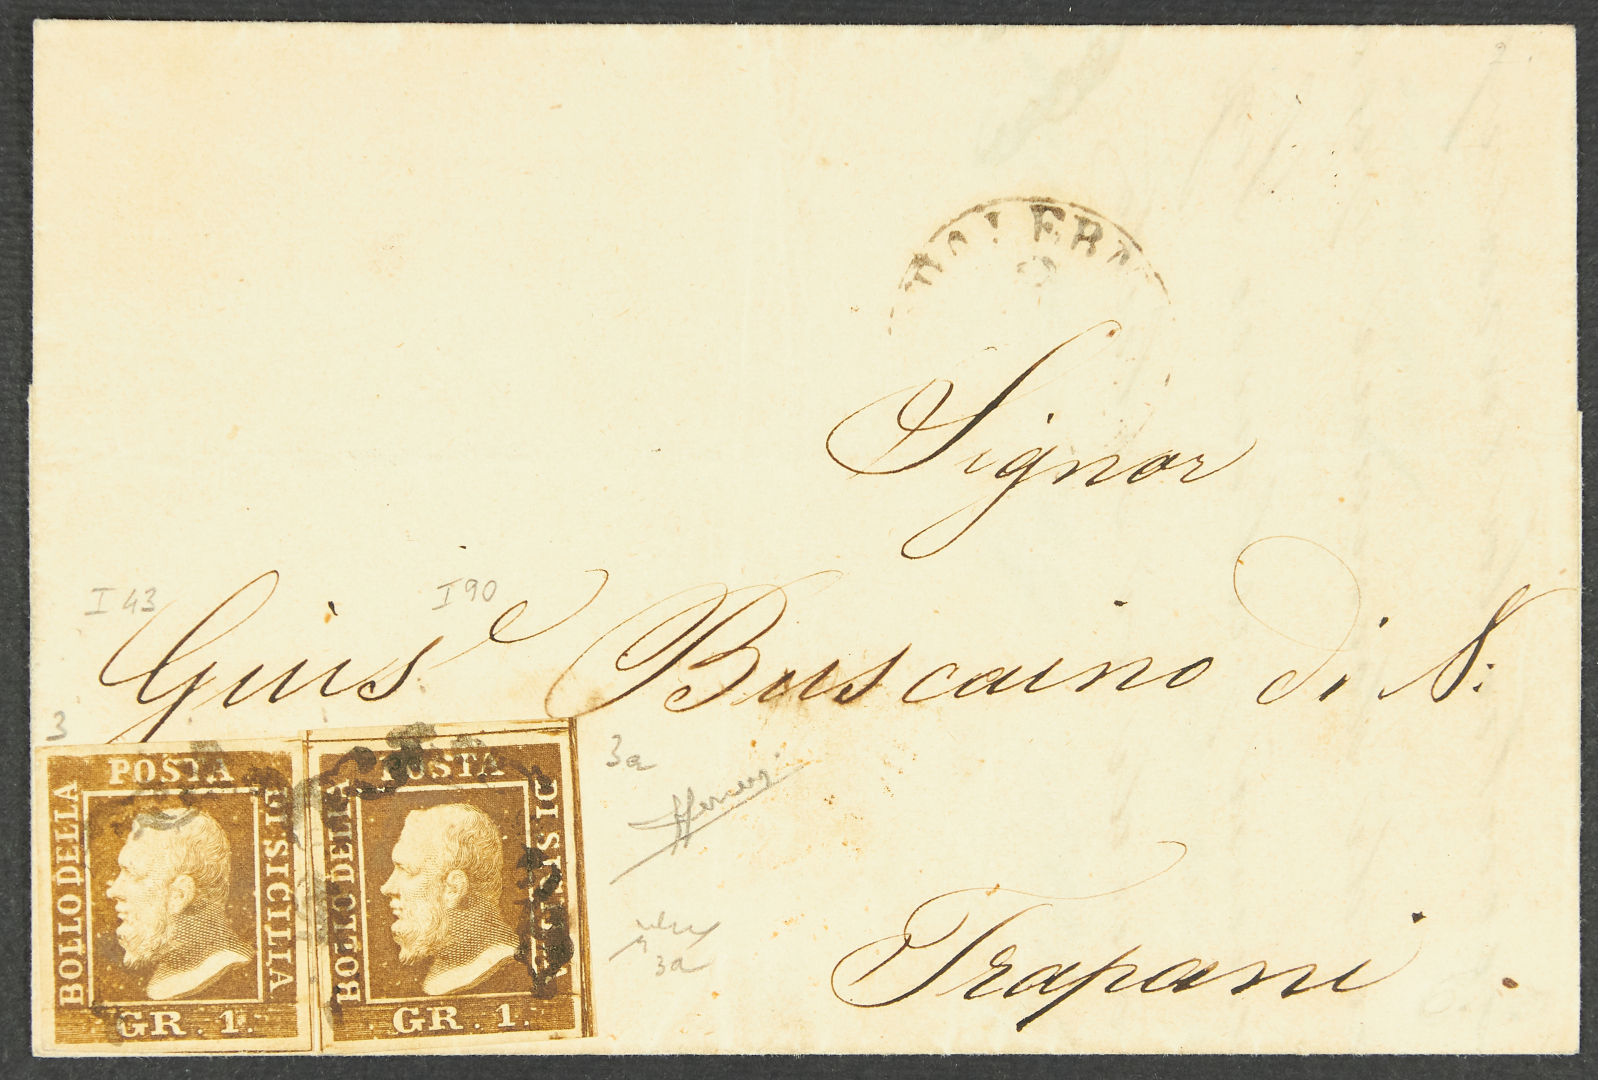 2.
Signor
I 43 I 90
Guis.e Buscaino di N:
3
3a
POSTA
BOLLO DELLA
DI SICILIA
GR. 1.
POSTA
BOLLO DELLA
DI SICILIA
GR. 1.
3a
Trapani